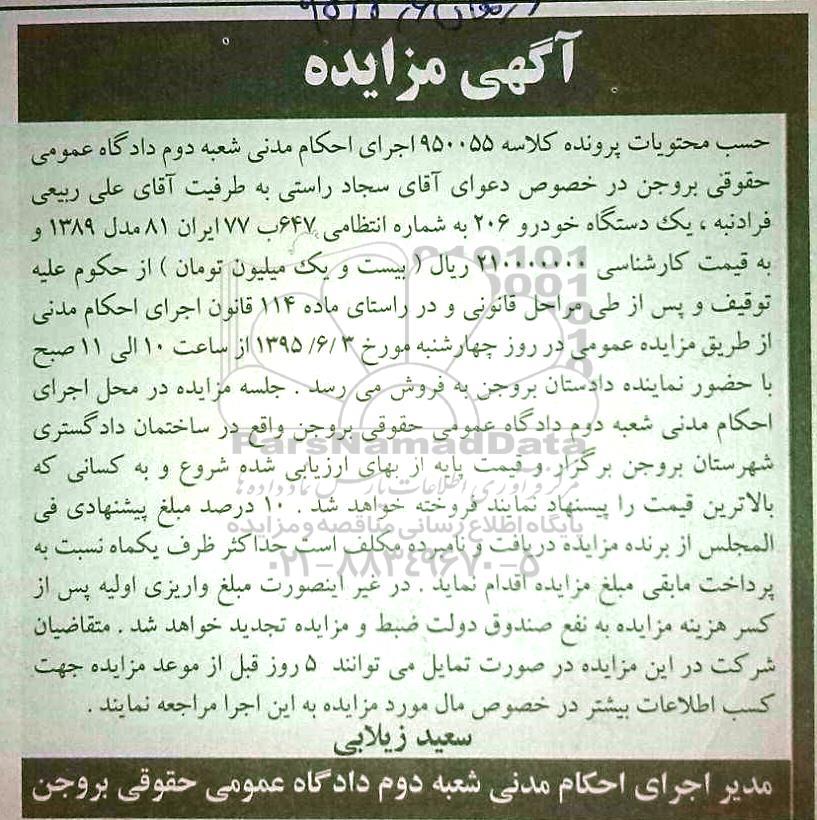 آگهی مزایده
حسب محتویات پرونده کلاسه ۹۵۰۰۵۵ اجرای احکام مدنی شعبه دوم دادگاه عمومی
حقوقی بروجن در خصوص دعوای آقای سجاد راستی به طرفیت آقای علی ربیعی
فرادنبه ، یک دستگاه خودرو ۲۰۶ به شماره انتظامی ۶۴۷ب ۷۷ ایران ۸۱ مدل ۱۳۸۹ و
به قیمت کارشناسی ۲۱۰۰۰۰۰۰۰ ریال ( بیست و یک میلیون تومان ) از حکوم علیه
توقیف و پس از طی مراحل قانونی و در راستای ماده ۱۱۴ قانون اجرای احکام مدنی
از طریق مزایده عمومی در روز چهارشنبه مورخ ۱۳۹۵/۶/۳ از ساعت ۱۰ الی ۱۱ صبح
با حضور نماینده دادستان بروجن به فروش می رسد . جلسه مزایده در محل اجرای
احکام مدنی شعبه دوم دادگاه عمومی حقوقی بروجن واقع در ساختمان دادگستری
ParsNamadData
شهرستان بروجن برگزار و قیمت پایه از بهای ارزیابی شده شروع و به کسانی که
مرکز فرآوری اطلاعات پارس نماد داده ها
بالاترین قیمت را پیسنهاد نمایند فروخته خواهد شد . ۱۰ درصد مبلغ پیشنهادی فی
پایگاه اطلاع رسانی مناقصه و مزایده
المجلس از برنده مزایده دریافت و نامبرده مکلف است حداکثر ظرف یکماه نسبت به
۰۲۱-۸۸۳۴۹۶۷۰-۵
پرداخت مابقی مبلغ مزایده اقدام نماید . در غیر اینصورت مبلغ واریزی اولیه پس از
کسر هزینه مزایده به نفع صندوق دولت ضبط و مزایده تجدید خواهد شد . متقاضیان
شرکت در این مزایده در صورت تمایل می توانند ۵ روز قبل از موعد مزایده جهت
کسب اطلاعات بیشتر در خصوص مال مورد مزایده به این اجرا مراجعه نمایند .
سعید زیلابی
مدیر اجرای احکام مدنی شعبه دوم دادگاه عمومی حقوقی بروجن